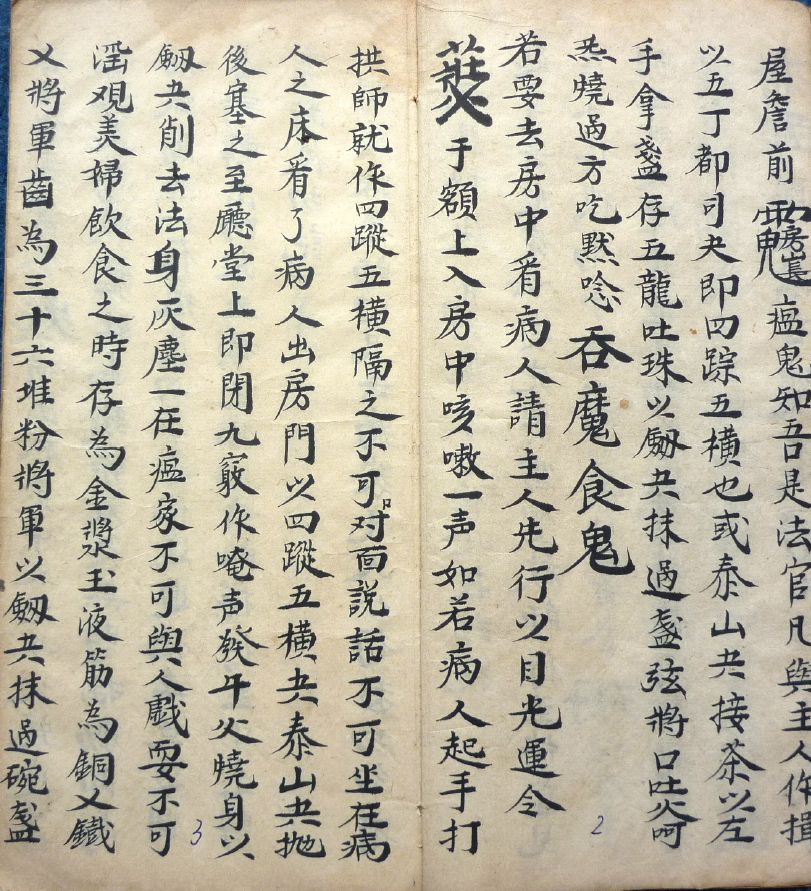 屋詹前瘟鬼知吾是法官凡與主人作揖
以五丁都司夬即四踪五橫也或泰山夬接茶以左
手拿盞存五龍吐珠以劔夬抹過盞弦將口吐火呵
炁燒過方吃黙唸吞魔食鬼
若要去房中看病人請主人先行以目光運令
于額上入房中咳嗽一声如若病人起手打
拱師就作四蹤五橫隔之不可对面説話不可坐在病
人之床看了病人出房門以四蹤五橫夬泰山夬抛
後塞之至廳堂上即閉九竅作唵声發午火燒身以
劔夬削去法身灰塵一在瘟家不可與人戲耍不可
滛观美婦飲食之時存為金漿玉液筋為銅乂鐵
乂將軍齒為三十六堆粉將軍以劔夬抹過碗盞
2
3